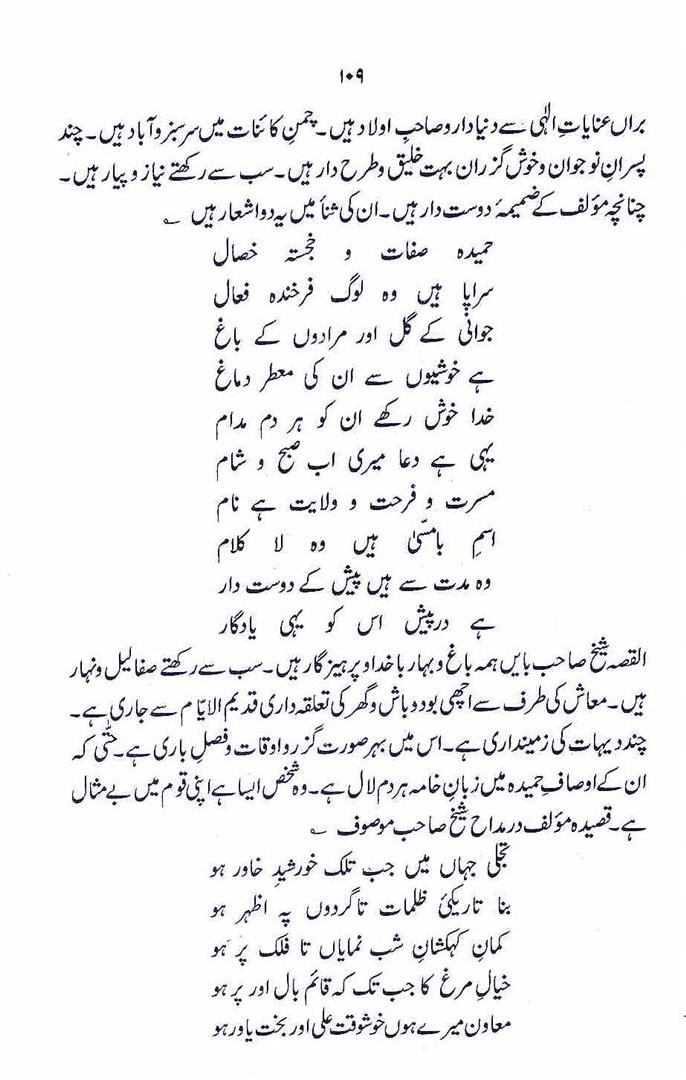 ۱۰۹
براں عنایاتِ الٰہی سے دنیا دار و صاحبِ اولاد ہیں۔ چمنِ کائنات میں سرسبز و آباد ہیں۔ چند
پسرانِ نوجوان و خوش گزران بہت خلیق و طرح دار ہیں۔ سب سے رکھتے نیاز و پیار ہیں۔
چنانچہ مؤلف کے ضمیمۂ دوست دار ہیں۔ ان کی ثنأ میں یہ دو اشعار ہیں ؎
حمیدہ صفات و خجستہ خصال
سراپا ہیں وہ لوگ فرخندہ فعال
جوانی کے گل اور مرادوں کے باغ
ہے خوشیوں سے ان کی معطر دماغ
خدا خوش رکھے ان کو ہر دم مدام
یہی ہے دعا میری اب صبح و شام
مسرت و فرحت و ولایت ہے نام
اسمِ بامسمّیٰ ہیں وہ لا کلام
وہ مدت سے ہیں پیشؔ کے دوست دار
ہے درپیش اس کو یہی یادگار
القصہ شیخ صاحب بایں ہمہ باغ و بہار باخدا و پرہیز گار ہیں۔ سب سے رکھتے صفا لیل و نہار
ہیں۔ معاش کی طرف سے اچھی بود و باش و گھر کی تعلقہ داری قدیم الایّام سے جاری ہے۔
چند دیہات کی زمینداری ہے۔ اس میں بہر صورت گزر و اوقات و فصلِ باری ہے۔ حتّٰی کہ
ان کے اوصافِ حمیدہ میں زبانِ خامہ ہر دم لال ہے۔ وہ شخص ایسا ہے اپنی قوم میں بے مثال
ہے۔ قصیدہ مؤلف در مداحِ شیخ صاحب موصوف ؎
تجلی جہاں میں جب تلک خورشیدِ خاور ہو
بنا تاریکیٔ ظلمات تا گردوں پہ اظہر ہو
کمانِ کہکشانِ شب نمایاں تا فلک پر ہو
خیالِ مرغ کا جب تک کہ قائم بال اور پر ہو
معاون میرے ہوں خوشوقت علی اور بخت یاور ہو